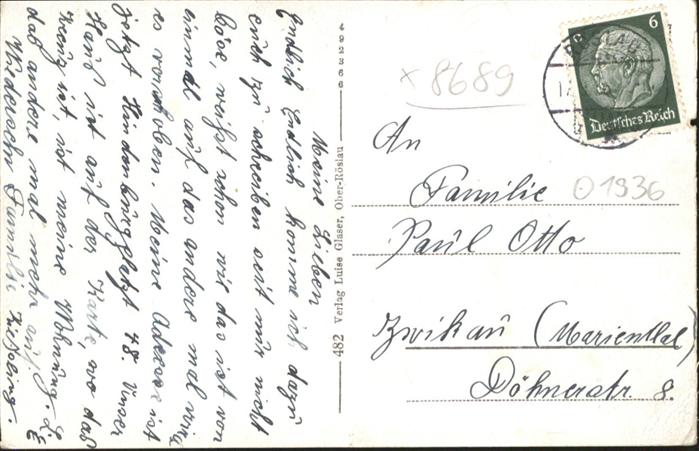 Meine Lieben
Endlich Endlich komme ich dazu
euch zu schreiben seit mir nicht
böse, weißt schon wie das ist von
einmal auf das andere mal wird
es verschoben. Meine Adresse ist
jetzt Hindenburgplatz 48. Unser
Haus ist auf der Karte, wo das
Kreuz ist, ist meine Wohnung.
das andere mal mehr auf
Wiedersehn Familie
482 Verlag Luise Glaser, Ober-Röslau
492366
× 8689
RÖSLAU
6
Deutsches Reich
An
Familie
O 1936
Paul Otto
Zwikau (Marienthal)
Döhnerstr. 8.